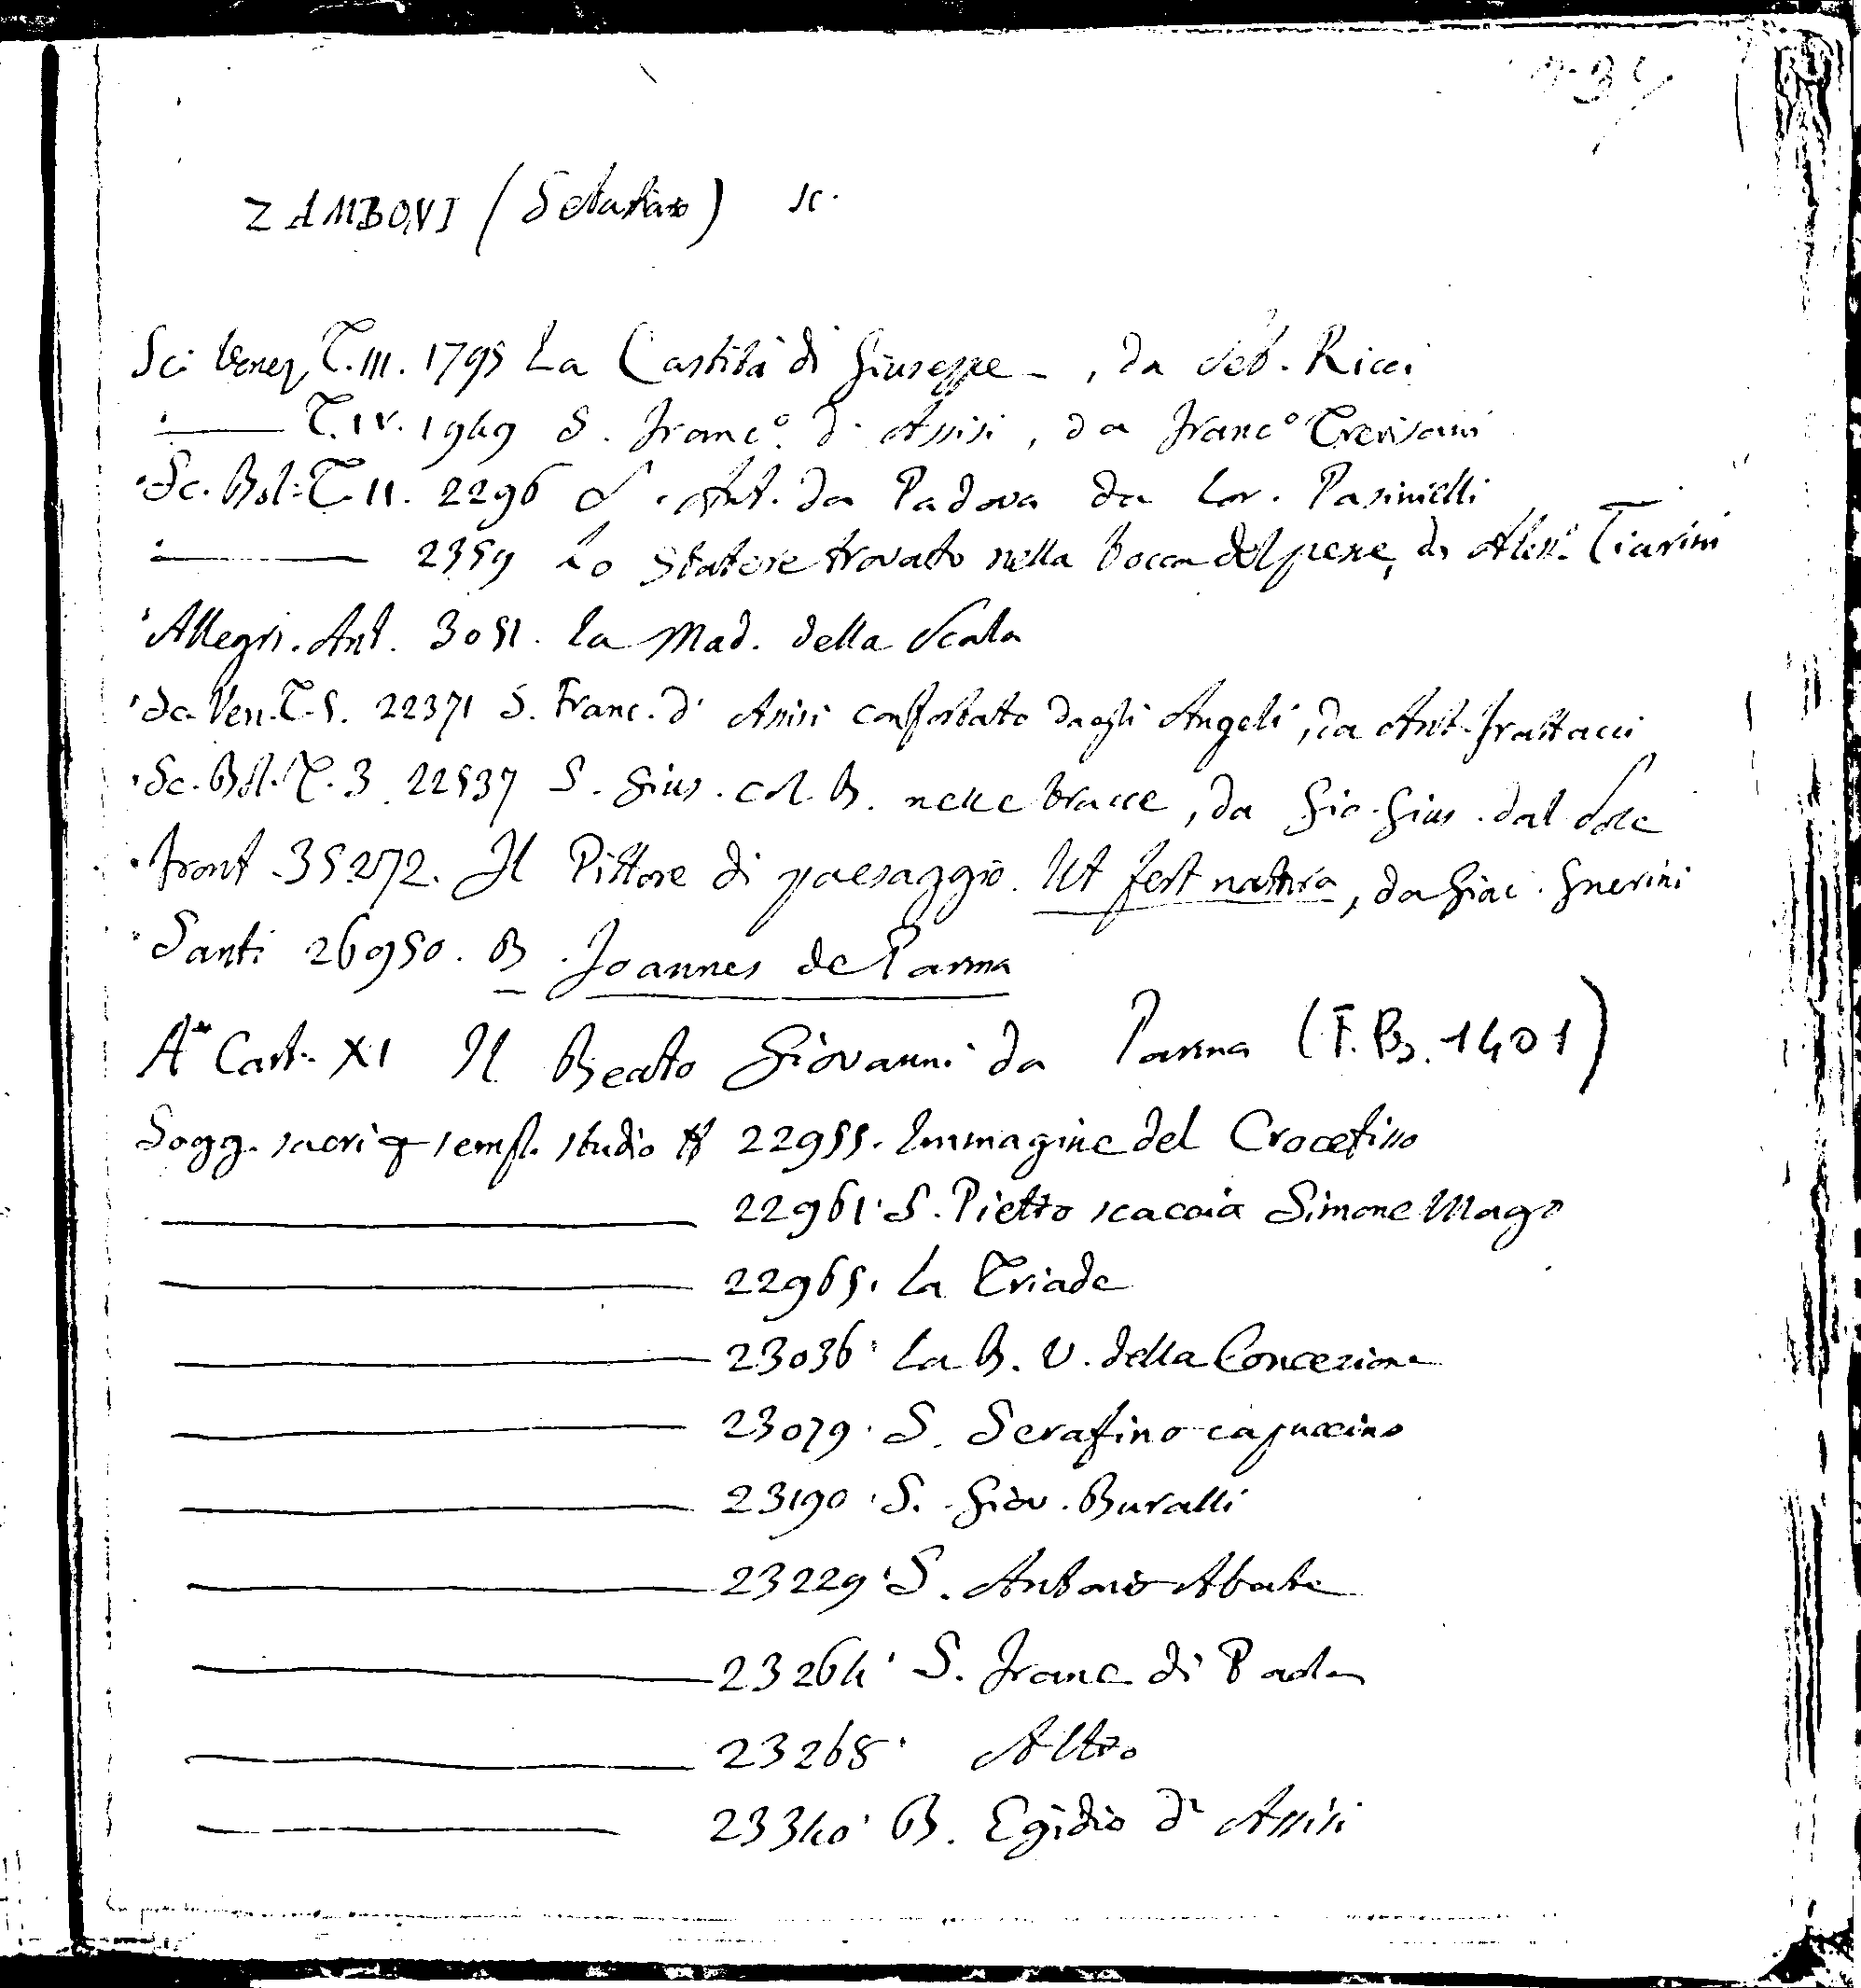 ZAMBONI (Sebastiano) sc.
Sc. Venez. T. III. 1795 La Castità di Giuseppe, da Seb. Ricci
——— T. IV. 1949 S. Franc.º d'Assisi, da Franc.º Trevisani
Sc. Bol. T. II. 2296 S. Ant. da Padova da Lor. Pasinelli
——— 2359 Lo Statere trovato nella bocca del pesce, da Aless.º Tiarini
Allegri. Ant. 3051. la Mad. della Scala
Sc. Ven. T. 5. 22371 S. Franc. d'Assisi confortato dagli Angeli, da Ant.
Sc. Bol. T. 3. 22537 S. Gius. col B. nelle bracce, da Gio. Gius. dal Sole
Front. 35272. Il Pittore di paesaggio. Ut fert natura, da Giac. Guerini
Santi 26950. B. Joannes de Parma
Cart. XI Il Beato Giovanni da Parma (F. B. 1401)
Sogg. sacri sempl. studio 22955. Immagine del Crocefisso
——— 22961. S. Pietro scaccia Simone Mago
——— 22965. La Triade
——— 23036. La B. V. della Concezione
——— 23079. S. Serafino capuccino
——— 23190. S. Giov. Buralli
——— 23229. S. Antonio Abate
——— 23264. S. Franc. di Paola
——— 23268. Altro
——— 23340. B. Egidio d'Assisi